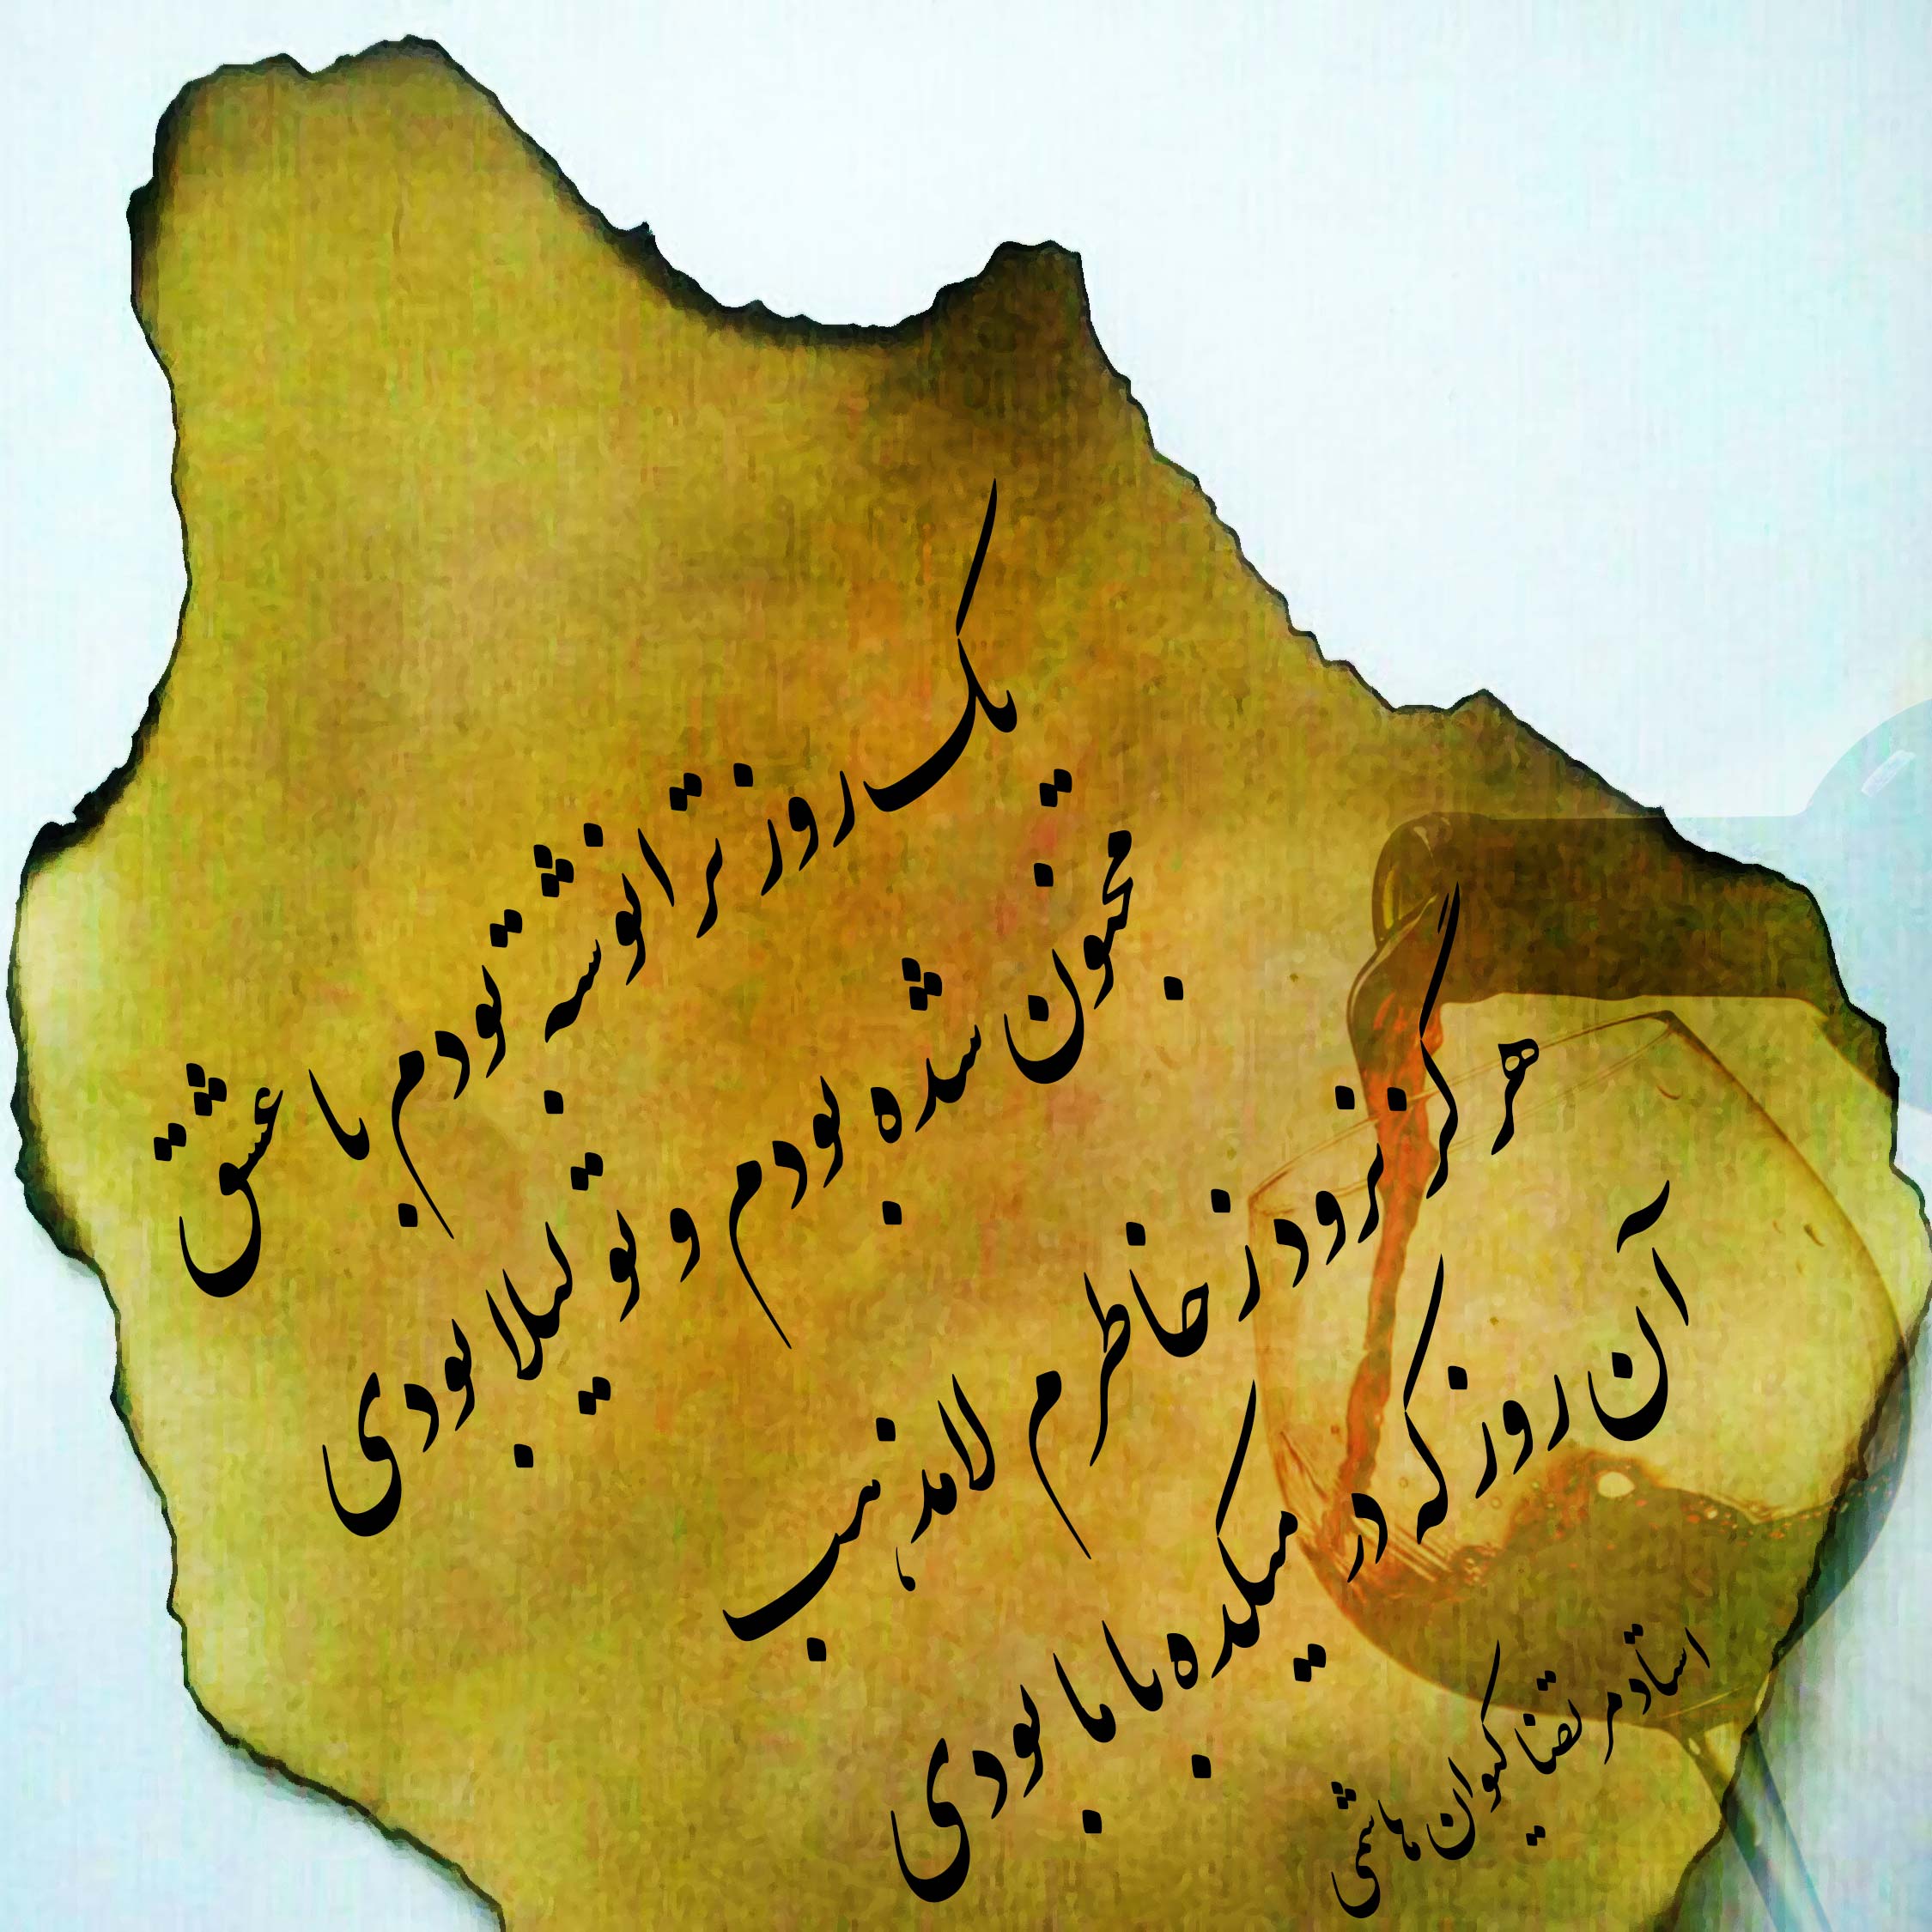 یک روز ترا نوشته بودم با عشق
مجنون شده بودم و تو لیلا بودی
هرگز نرود ز خاطرم لامذهب
آن روز که در میکده با ما بودی
استاد مرتضا کیوان هاشمی